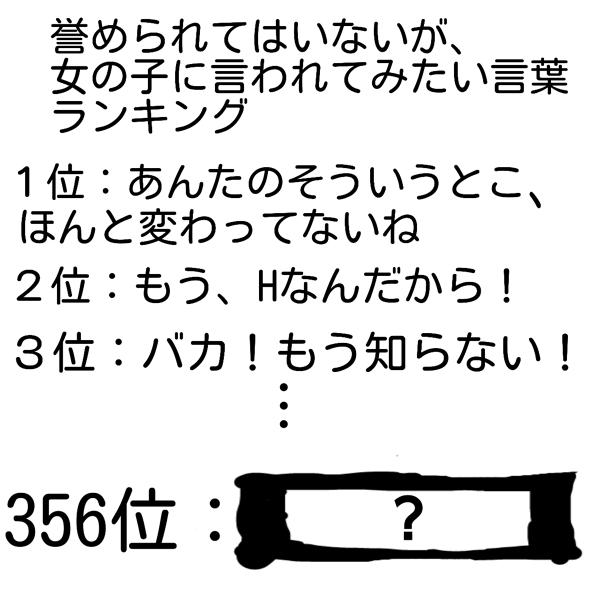 誉められてはいないが、
女の子に言われてみたい言葉
ランキング
１位：あんたのそういうとこ、
ほんと変わってないね
２位：もう、Hなんだから！
３位：バカ！もう知らない！
⋮
356位：？